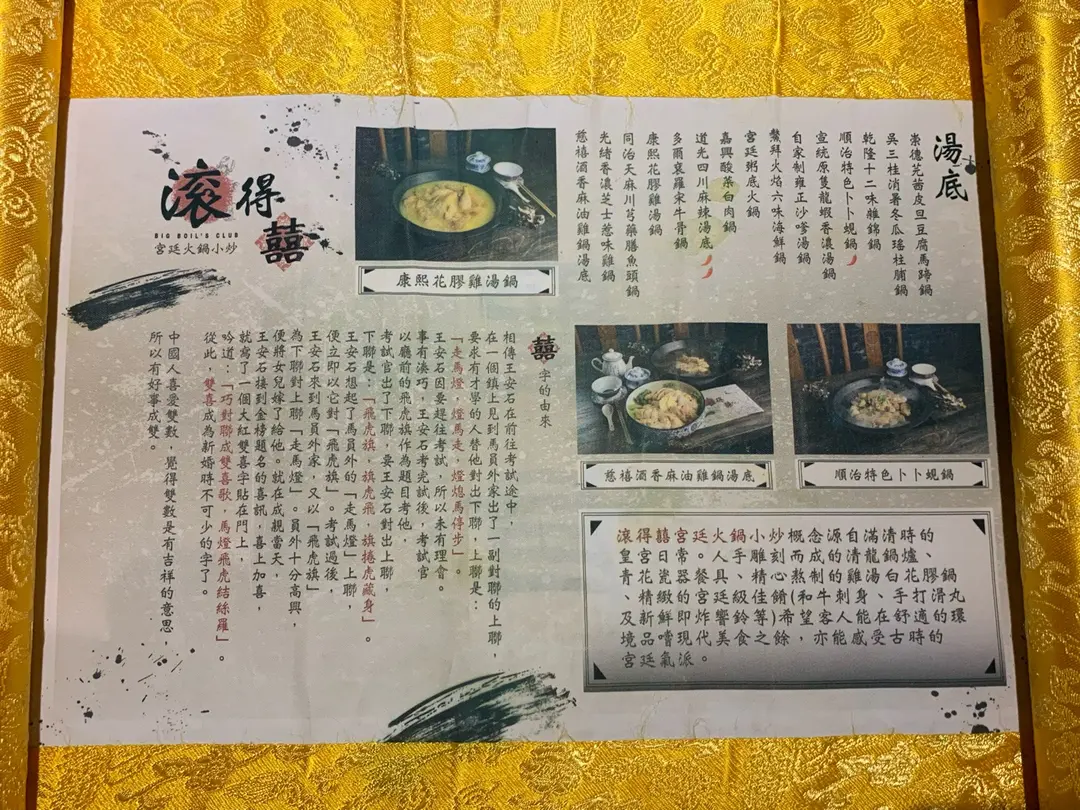 滾得囍
BIG BOIL'S CLUB
宮廷火鍋小炒
康熙花膠雞湯鍋
湯底
崇德芫茜皮旦豆腐馬蹄鍋
吳三桂消暑冬瓜瑤柱脯鍋
乾隆十二味雜錦鍋
順治特色卜卜蜆鍋
宣統原隻龍蝦香濃湯鍋
自家制雍正沙嗲湯鍋
鰲拜火焰六味海鮮鍋
宮廷粥底火鍋
嘉興酸菜白肉鍋
道光四川麻辣湯底
多爾袞羅宋牛骨鍋
康熙花膠雞湯鍋
同治天麻川芎藥膳魚頭鍋
光緒香濃芝士惹味雞鍋
慈禧酒香麻油雞鍋湯底
慈禧酒香麻油雞鍋湯底
順治特色卜卜蜆鍋
囍字的由來
相傳王安石在前往考試途中，
在一個鎮上見到馬員外家出了一副對聯的上聯，
要求有才學的人替他對出下聯，上聯是：
「走馬燈，燈馬走，燈熄馬停步」。
王安石因要趕往考試，所以未有理會。
事有湊巧，王安石考完試後，考試官
以廳前的飛虎旗作為題目考他，
考試官出了下聯，要王安石對出上聯，
下聯是：「飛虎旗，旗虎飛，旗捲虎藏身」。
王安石想起了馬員外的「走馬燈」上聯，
便立即以它對「飛虎旗」。考試過後，
王安石來到馬員外家，又以「飛虎旗」
為下聯對上聯「走馬燈」。員外十分高興，
便將女兒嫁了給他。就在成親當天，
王安石接到金榜題名的喜訊，喜上加喜，
就寫了一個大紅雙喜字貼在門上，
吟道：「巧對聯成雙喜歌，馬燈飛虎結絲羅」。
從此，雙喜成為新婚時不可少的字了。
中國人喜愛雙數，覺得雙數是有吉祥的意思，
所以有好事成雙。
滾得囍宮廷火鍋小炒概念源自滿清時的
皇宮日常。人手雕刻而成的清龍鍋爐、
青花瓷器的餐具、精心熬制的雞湯白花膠鍋
及精緻的宮廷級佳餚(和牛刺身、手打滑丸
及新鮮即炸響鈴等)希望客人能在舒適的環
境品嚐現代美食之餘，亦能感受古時的
宮廷氣派。